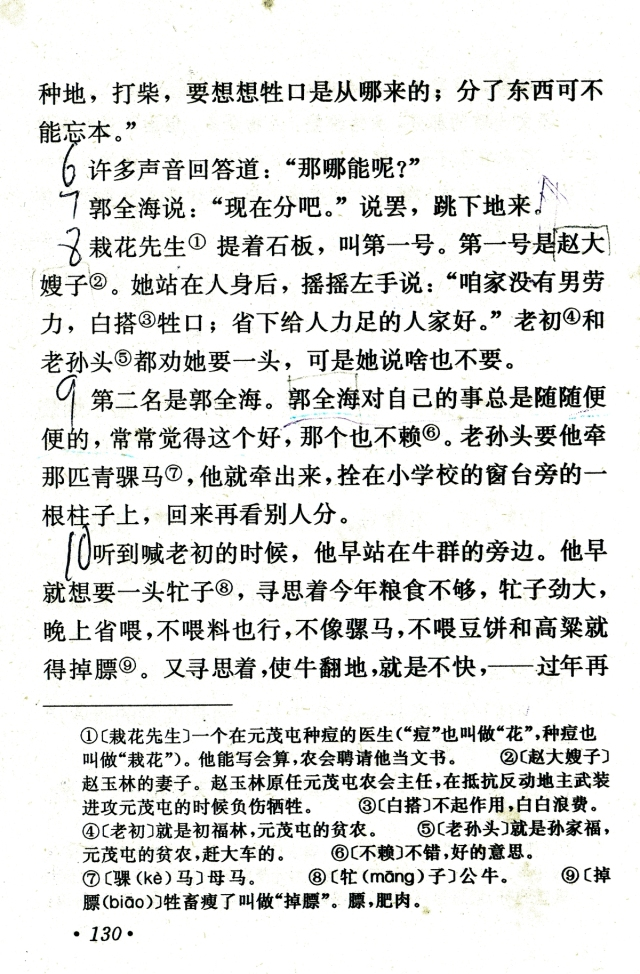 种地，打柴，要想想牲口是从哪来的；分了东西可不
能忘本。”
6 许多声音回答道：“那哪能呢？”
7 郭全海说：“现在分吧。”说罢，跳下地来。
8 栽花先生① 提着石板，叫第一号。第一号是赵大
嫂子②。她站在人身后，摇摇左手说：“咱家没有男劳
力，白搭③牲口；省下给人力足的人家好。”老初④和
老孙头⑤都劝她要一头，可是她说啥也不要。
9 第二名是郭全海。郭全海对自己的事总是随随便
便的，常常觉得这个好，那个也不赖⑥。老孙头要他牵
那匹青骒马⑦，他就牵出来，拴在小学校的窗台旁的一
根柱子上，回来再看别人分。
10 听到喊老初的时候，他早站在牛群的旁边。他早
就想要一头牤子⑧，寻思着今年粮食不够，牤子劲大，
晚上省喂，不喂料也行，不像骡马，不喂豆饼和高粱就
得掉膘⑨。又寻思着，使牛翻地，就是不快，——过年再
①〔栽花先生〕一个在元茂屯种痘的医生（“痘”也叫做“花”，种痘也
叫做“栽花”）。他能写会算，农会聘请他当文书。 ②〔赵大嫂子〕
赵玉林的妻子。赵玉林原任元茂屯农会主任，在抵抗反动地主武装
进攻元茂屯的时候负伤牺牲。 ③〔白搭〕不起作用，白白浪费。
④〔老初〕就是初福林，元茂屯的贫农。 ⑤〔老孙头〕就是孙家福，
元茂屯的贫农，赶大车的。 ⑥〔不赖〕不错，好的意思。
⑦〔骒（kè）马〕母马。 ⑧〔牤（māng）子〕公牛。 ⑨〔掉
膘（biāo）〕牲畜瘦了叫做“掉膘”。膘，肥肉。
· 130 ·